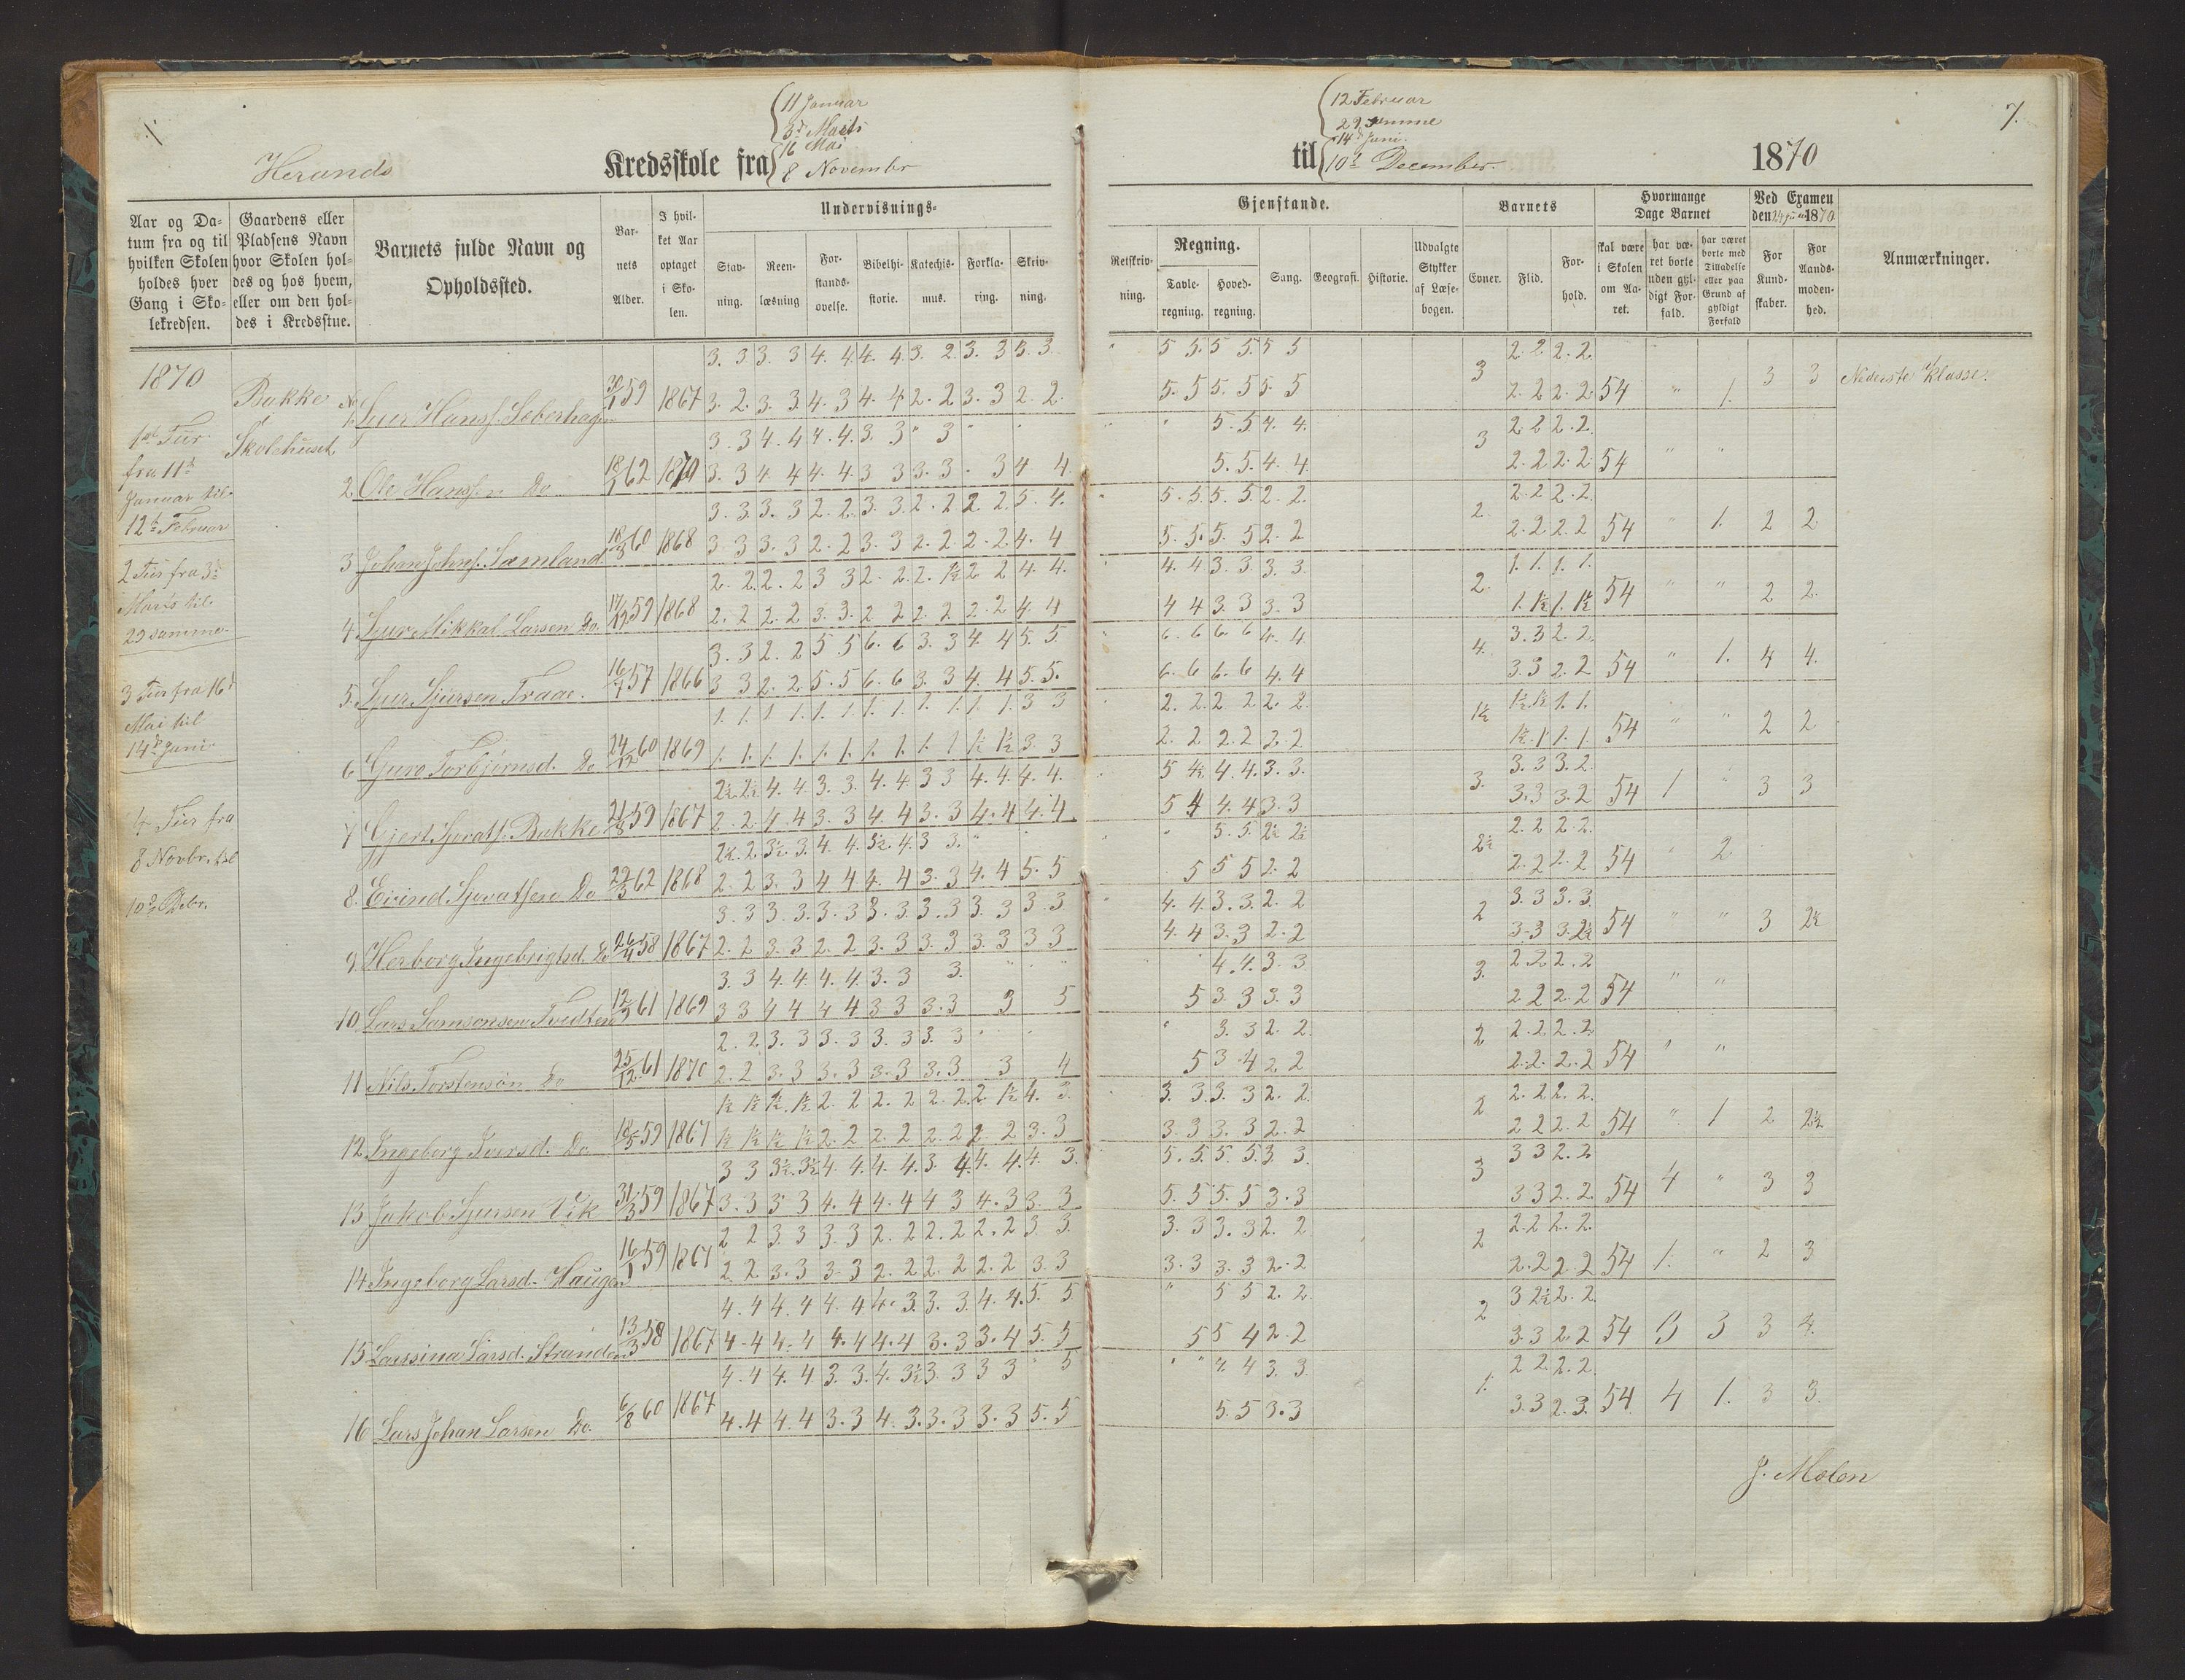 7.
11 Januar
3d Marts
16 Mai
8 Novembr
Herands Kredsskole fra
12 Februar
29 samme
14d Juni
10d December.
til 1870
Aar og Datum fra og til hvilken Skolen holdes hver Gang i Skolekredsen.
Gaardens eller Pladsens Navn hvor Skolen holdes og hos hvem, eller om den holdes i Kredsstue.
Barnets fulde Navn og Opholdssted.
Barnets Alder.
I hvilket Aar optaget i Skolen.
Undervisnings-
Stavning. Reenlæsning Forstandsøvelse. Bibelhistorie. Katechismus. Forklaring. Skrivning.
Gjenstande.
Retskrivning. Regning. Tavleregning. Hovedregning. Sang. Geografi. Historie. Udvalgte Stykker af Læsebogen.
Barnets
Evner. Flid. Forhold.
Hvormange Dage Barnet
skal være i Skolen om Aaret. har været borte uden gyldigt Forfald. har været borte med Tilladelse eller paa Grund af gyldigt Forfald
Ved Examen den 24 Juni 1870
For Kundskaber. For Aandsmodenhed.
Anmærkninger.
1870
1ste Tur
fra 11te
Januar til
12te Februar
2 Tur fra 3d
Marts til
29 samme
3 Tur fra 16d
Mai til
14d Juni
4 Tur fra
8 Novbr. til
10d Debr.
Bakke
Skolehuset
3. 3 3. 3 4. 4. 4. 4. 3. 2. 3. 3 3. 3. " 5 5. 5 5. 5 5 2. 2 2. 2.
No 1. Sjur Hanss. Sæberhagen 30/1 59 1867 3. 2. 3. 3. 4. 3 4. 4 2. 2 3. 3 2. 2. 5. 5 5. 5 5. 5 3 2. 2 2. 2. 54 " 1. 3 3 Nederste Klasse.
3. 3 4. 4 4. 4. 3. 3 " 3 " " " 5. 5 4. 4. 2. 2 2. 2.
2 Ole Hanssen Do 18/1 62 1870 3. 3 4. 4 4. 4. 3 3 3. 3 . 3 4 4. 5. 5. 4. 4 3 2. 2 2. 2 54 " "
3. 3 3. 3 2. 2. 3. 3. 2. 2 2. 2. 5. 4. " 5. 5. 5. 5 2. 2. 2. 2 2. 2.
3 Johan Johns. Samland 18/3 60 1868 3. 3 3. 3 2. 2 3. 3 2. 2. 2. 2 4. 4 5. 5. 5. 5 2. 2 2. 2. 2 2. 2 54 " 1. 2 2
2. 2. 2. 2 3 3 2. 2. 2. 1½ 2 2 4. 4. 4. 4 3. 3. 3. 3. 1. 1. 1. 1.
4. Sjur Mikkal Larsen Do. 17/12 59 1868 2. 2 2. 2 3. 3. 2 2 2. 2 2. 2 4. 4 4 4 3. 3 3. 3 2. 1. 1½ 1. 1½ 54 " " 2 2.
3. 3 2. 2 5 5 6. 6 3. 3 4. 4 5. 5 6. 6 6. 6 4. 4 3. 3 2. 2.
5. Sjur Sjursen Traae. 16/7 57 1866 3 3 2. 2 5. 5 6. 6 3. 3 4. 4 5. 5. 6. 6 6. 6 4. 4 4. 3. 3 2. 2 54 " 1. 4 4.
1. 1. 1. 1. 1. 1. 1. 1. 1. 1. 1. 1. 3 3 2. 2. 2 2 2. 2 1½ 1½ 1. 1.
6 Guro Torbjørnsd. Do 24/12 60 1869 1. 1. 1. 1. 1. 1. 1. 1. 1. 1 1½ 1½ 3. 3 2. 2 2. 2 2. 2 1½ 1½ 1 1. 1 54 " " 2 2
2½ 2½ 4. 4 3. 3. 4. 4. 3 3 4. 4. 4. 4. 5 4½ 4. 4. 3. 3. 3. 3 3. 2.
7 Gjert Sjovats. Bakke 21/8 59 1867 2. 2. 4. 4 3. 3 4. 4 3. 3 4. 4 4. 4. 5 4 4. 4 3. 3 3. 3. 3 3. 2 54 1 " 3 3
2½. 2. 3½ 3. 4. 4. 3½. 4. 3 3. " " " 5. 5. 2½ 2½ 2. 2 2. 2.
8. Eivind Sjovatsen Do 22/3 62 1868 2. 2 3. 3 4 4 4. 4 3. 3 4. 4 5. 5 5 5 5 2. 2 2½ 2. 2. 2. 2 54 " 2
3. 3 3. 3. 3. 3 3. 3. 3. 3 3. 3 3. 3 4. 4. 3. 3. 2. 2 3. 3 3. 3.
9. Herborg Ingebrigtsd. Do 26/4 58 1867 2. 2 3. 3 2. 2 3. 3 3. 3 3. 3 3 3 4. 4 3. 3 2. 2 2 3. 3 3. 2½ 54 " " 3 2½
3. 3 4. 4. 4. 4. 3. 3 3. " " " 4. 4. 3 3 2. 2 2. 2
10 Lars Samsonsen Tvedten 12/3 61 1869 3 3 4 4 4 4 3 3 3. 3 3 5 5 3. 3 3. 3 3. 2 2 2. 2 54 " "
2. 2 3. 3 3. 3 3. 3 3. 3 " " " 3. 3 2. 2. 2. 2 2. 2.
11 Nils Torstensøn Do 25/12 61 1870 2. 2 3. 3 3. 3 3. 3 3. 3 3 4 5 3. 4 2. 2 2 2. 2. 2. 2 54 " "
1½ 1½ 1½. 1½ 2. 2 2. 2 2. 2. 2 1½ 4. 3. 3. 3. 3. 3 2. 2. 2. 2 2. 2.
12 Ingeborg Iversd. Do 18/5 59 1867 1½ 1½ 1½ 1½ 2. 2 2. 2 2. 2 2. 2 3. 3 3. 3 3. 3 2. 2 2 2 2 2. 2 54 " 1 2 2½
3 3 3½. 3½ 4. 4. 4. 4. 3. 4. 4. 4. 4. 3. 5. 5. 5. 5. 3 3. 3 3 2. 2
13 Jakob Sjursen Vik 31/3 59 1867 3. 3 3 3 4. 4 4. 4 4 3 4. 3 3. 3 5. 5 5. 5 3. 3 3 3 3 2. 2. 54 4 " 3 3
2 2 3. 3 3. 3 2. 2 2. 2 2. 2 3 3. 3. 3 3. 3 2. 2 2. 2 2. 2.
14 Ingeborg Larsd. Haugen 16/1 59 1867 2. 2 3. 3 3. 3 2. 2 2. 2 2. 2 3. 3 3. 3 3. 3 2. 2 2 2. 2 2. 2 54 1. " 2 3
4. 4 4. 4 4. 4 4. 3. 3. 3. 4. 4. 5. 5 " 5 5 2. 2. 3 2½ 2. 2.
15 Larssina Larsd. Stranden 13/3 58 1867 4. 4 4. 4 4. 4 4. 4 3. 3 3. 4 5. 5 5 5 4 2. 2 2 3. 3 2 2 54 3 3 3 4.
4. 4 4. 4 3. 3. 4. 3½ 3. 3 3 3 " 5 " " 4. 4 3. 3. 2 2 2. 2
16 Lars Johan Larsen Do. 6/8 60 1867 4. 4 4. 4 3. 3 4. 3. 3. 3 3. 3 5. 5 5. 5 3. 3 1. 3. 3 2. 3. 54 4 1. 3 3.
J. Mælen